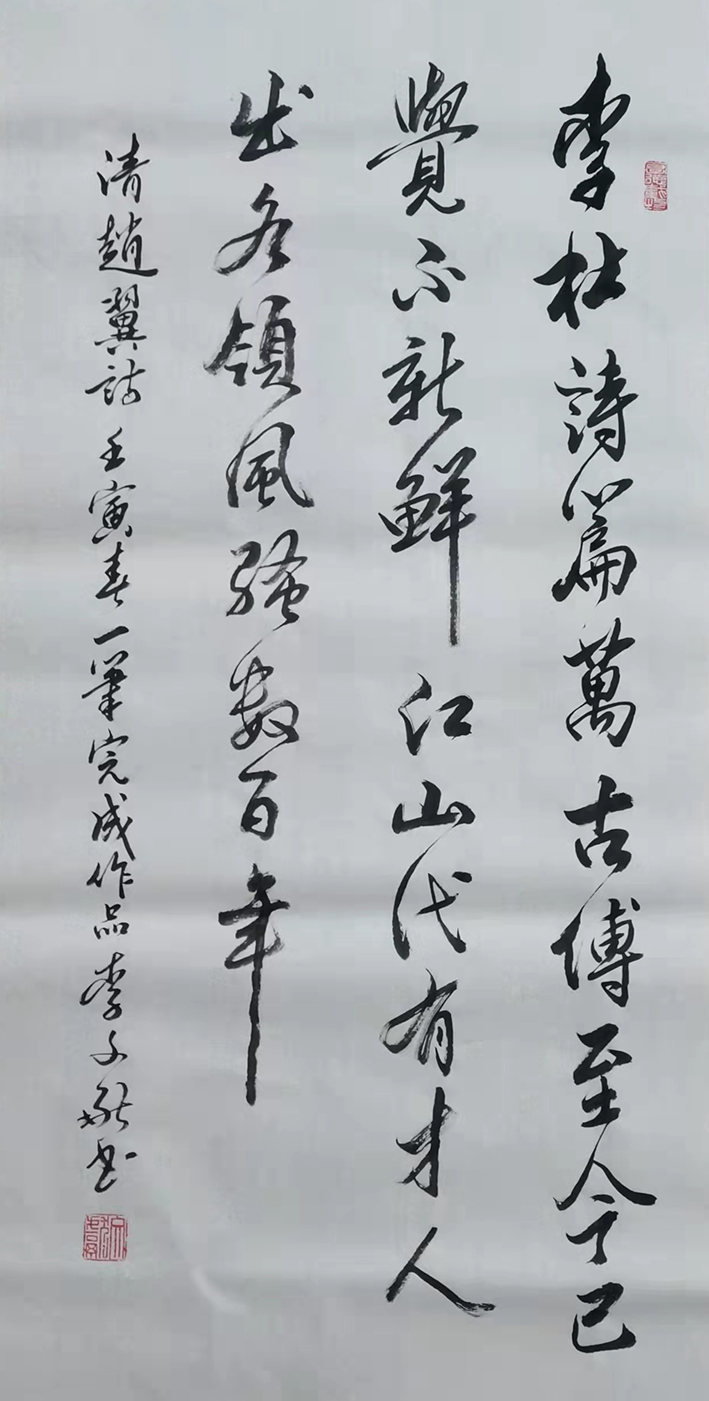 李杜詩篇萬古傳至今已
覺不新鮮江山代有才人
出各領風騷数百年
清趙翼詩壬寅春一筆完成作品李文敬书